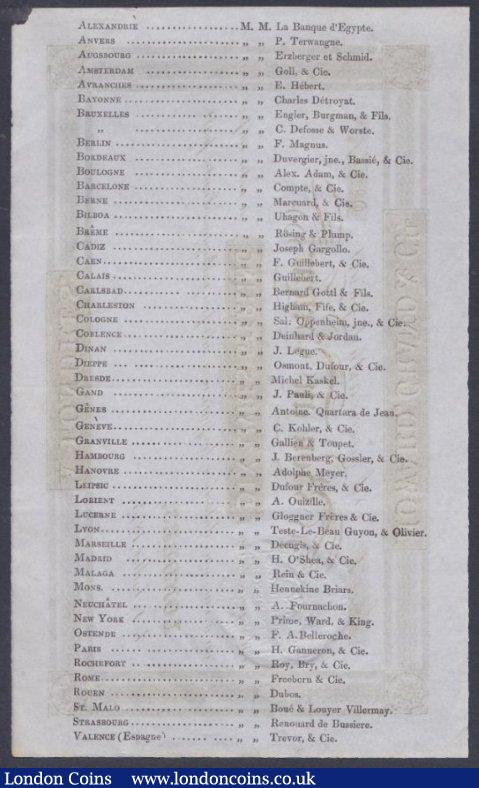 ALEXANDRIE .................. M. M. La Banque d'Egypte.
ANVERS .................. „ „ P. Terwangne.
AUGSBOURG .................. „ „ Erzberger et Schmid.
AMSTERDAM .................. „ „ Goll, & Cie.
AVRANCHES .................. „ „ E. Hébert.
BAYONNE .................. „ „ Charles Détroyat.
BRUXELLES .................. „ „ Engler, Burgman, & Fils.
„ .................. „ „ C. Defosse & Worste.
BERLIN .................. „ „ F. Magnus.
BORDEAUX .................. „ „ Duvergier, jne., Bassié, & Cie.
BOULOGNE .................. „ „ Alex. Adam, & Cie.
BARCELONE .................. „ „ Compte, & Cie.
BERNE .................. „ „ Marcuard, & Cie.
BILBOA .................. „ „ Uhagon & Fils.
BRÊME .................. „ „ Rösing & Plump.
CADIZ .................. „ „ Joseph Gargollo.
CAEN .................. „ „ F. Guillebert, & Cie.
CALAIS .................. „ „ Guillebert.
CARLSBAD .................. „ „ Bernard Gottl & Fils.
CHARLESTON .................. „ „ Higham, Fife, & Cie.
COLOGNE .................. „ „ Sal. Oppenheim, jne., & Cie.
COBLENCE .................. „ „ Deinhard & Jordan.
DINAN .................. „ „ J. Legue.
DIEPPE .................. „ „ Osmont, Dufour, & Cie.
DRESDE .................. „ „ Michel Kaskel.
GAND .................. „ „ J. Pauli, & Cie.
GÊNES .................. „ „ Antoine. Quartara de Jean.
GENÈVE .................. „ „ C. Kohler, & Cie.
GRANVILLE .................. „ „ Gallien & Toupet.
HAMBOURG .................. „ „ J. Berenberg, Gossler, & Cie.
HANOVRE .................. „ „ Adolphe Meyer.
LEIPSIC .................. „ „ Dufour Fréres, & Cie.
LORIENT .................. „ „ A. Ouizille.
LUCERNE .................. „ „ Gloggner Frères & Cie.
LYON .................. „ „ Teste-Le-Beau Guyon, & Olivier.
MARSEILLE .................. „ „ Décugis, & Cie.
MADRID .................. „ „ H. O'Shea, & Cie.
MALAGA .................. „ „ Rein & Cie.
MONS. .................. „ „ Hennekine Briars.
NEUCHÂTEL .................. „ „ A. Fournachon.
NEW YORK .................. „ „ Prime, Ward, & King.
OSTENDE .................. „ „ F. A. Belleroche.
PARIS .................. „ „ H. Ganneron, & Cie.
ROCHEFORT .................. „ „ Roy, Bry, & Cie.
ROME .................. „ „ Freeborn & Cie.
ROUEN .................. „ „ Dubos.
ST. MALO .................. „ „ Boué & Louyer Villermay.
STRASBOURG .................. „ „ Renouard de Bussiere.
VALENCE (Espagne) .................. „ „ Trevor, & Cie.
London Coins www.londoncoins.co.uk